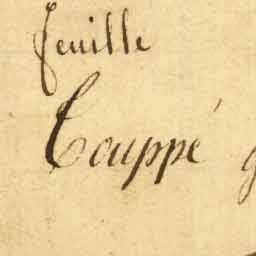 feuille
Couppé